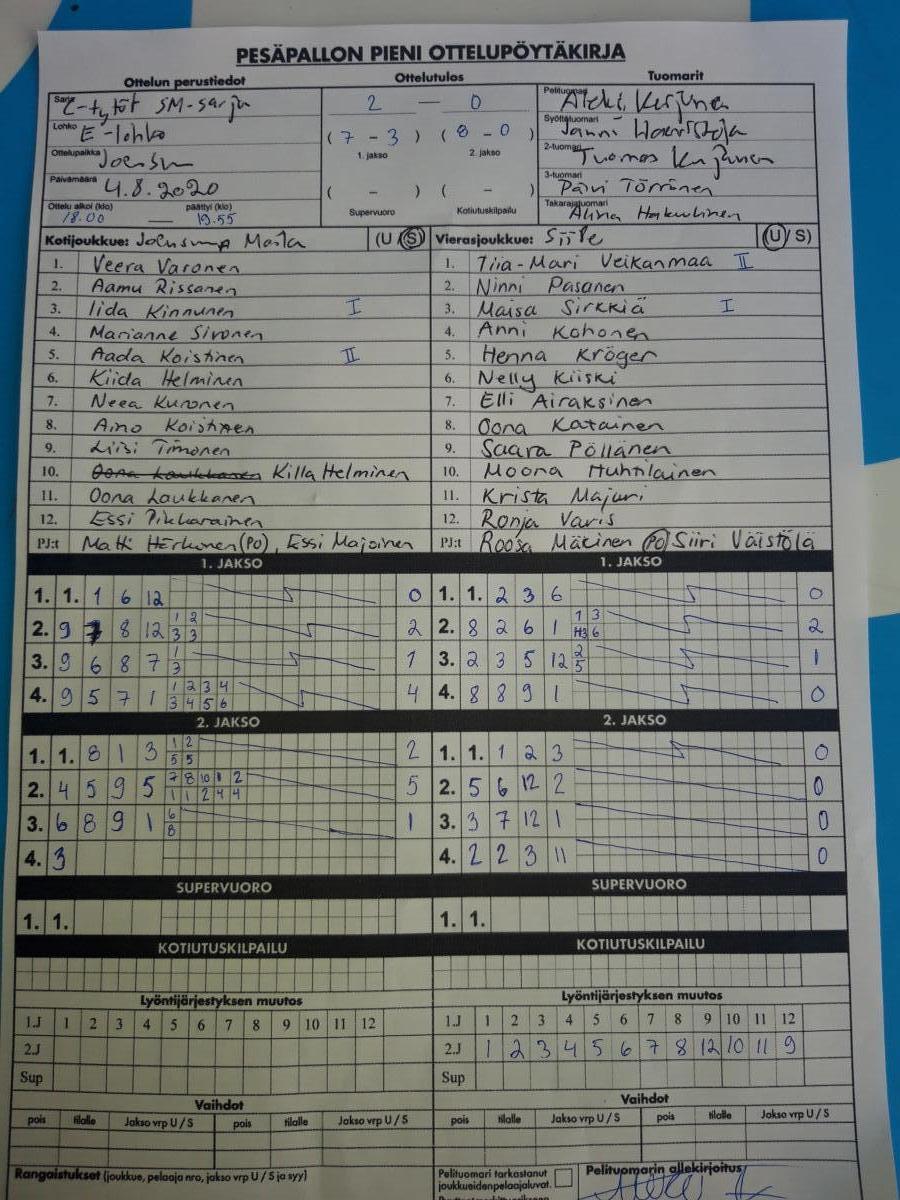 PESÄPALLON PIENI OTTELUPÖYTÄKIRJA
Ottelun perustiedot Ottelutulos Tuomarit
Sarja C-tytöt SM-sarja 2 — 0 Pelituomari
Lohko E-lohko (7 - 3) (8 - 0) Syöttötuomari Janni
1. jakso 2. jakso
Ottelupaikka Joensuu 2-tuomari Tuomas
Päivämäärä 4.8.2020 ( - ) ( - ) 3-tuomari Päivi Törrönen
Ottelu alkoi (klo) 18.00 — päättyi (klo) 19.55 Supervuoro Kotiutuskilpailu Takarajatuomari Alina
Kotijoukkue: Joensuun Maila (U/S) Vierasjoukkue: Siile (U/S)
1. Veera Varonen 1. Tiia-Mari Veikanmaa II
2. Aamu Rissanen 2. Ninni Pasanen
3. Iida Kinnunen I 3. Maisa Sirkkiä I
4. Marianne Sivonen 4. Anni Kohonen
5. Aada Koistinen II 5. Henna Kröger
6. Kiida Helminen 6. Nelly Kiiski
7. Neea Kuronen 7. Elli Airaksinen
8. Aino Koistinen 8. Oona Katainen
9. Liisi Timonen 9. Saara Pöllänen
10. Oona Laukkanen Killa Helminen 10. Moona Huhtilainen
11. Oona Laukkanen 11. Krista Majuri
12. Essi Pikkarainen 12. Ronja Varis
PJ:t Matti Härkönen (PO), Essi Majoinen PJ:t Roosa Mäkinen (PO) Siiri Väistölä
1. JAKSO 1. JAKSO
1. 1. 1 6 12 0 1. 1. 2 3 6 0
2. 9 7 8 12 1 2 3 3 2 2. 8 2 6 1 1 3 H3 6 2
3. 9 6 8 7 1 3 1 3. 2 3 5 12 2 5 1
4. 9 5 7 1 1 2 3 4 3 4 5 6 4 4. 8 8 9 1 0
2. JAKSO 2. JAKSO
1. 1. 8 1 3 1 2 5 5 2 1. 1. 1 2 3 0
2. 4 5 9 5 7 8 10 1 2 1 1 2 4 4 5 2. 5 6 12 2 0
3. 6 8 9 1 6 8 1 3. 3 7 12 1 0
4. 3 4. 2 2 3 11 0
SUPERVUORO SUPERVUORO
1. 1. 1. 1.
KOTIUTUSKILPAILU KOTIUTUSKILPAILU
Lyöntijärjestyksen muutos Lyöntijärjestyksen muutos
1.J 1 2 3 4 5 6 7 8 9 10 11 12 1.J 1 2 3 4 5 6 7 8 9 10 11 12
2.J 2.J 1 2 3 4 5 6 7 8 12 10 11 9
Sup Sup
Vaihdot Vaihdot
pois tilalle Jakso vrp U / S pois tilalle Jakso vrp U / S pois tilalle Jakso vrp U / S pois tilalle Jakso vrp U / S
Rangaistukset (joukkue, pelaaja nro, jakso vrp U / S ja syy) Pelituomari tarkastanut Pelituomarin allekirjoitus
joukkueidenpelaajaluvat.